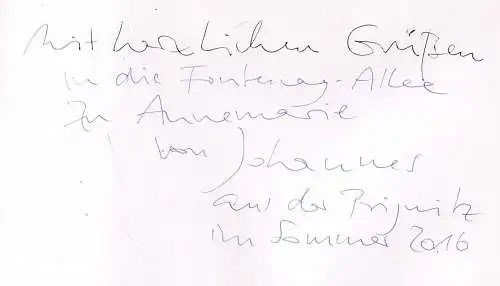 Mit herzlichen Grüßen
in die Fontenay-Allee
Zu Annemarie
von Johannes
aus der Prignitz
im Sommer 2016